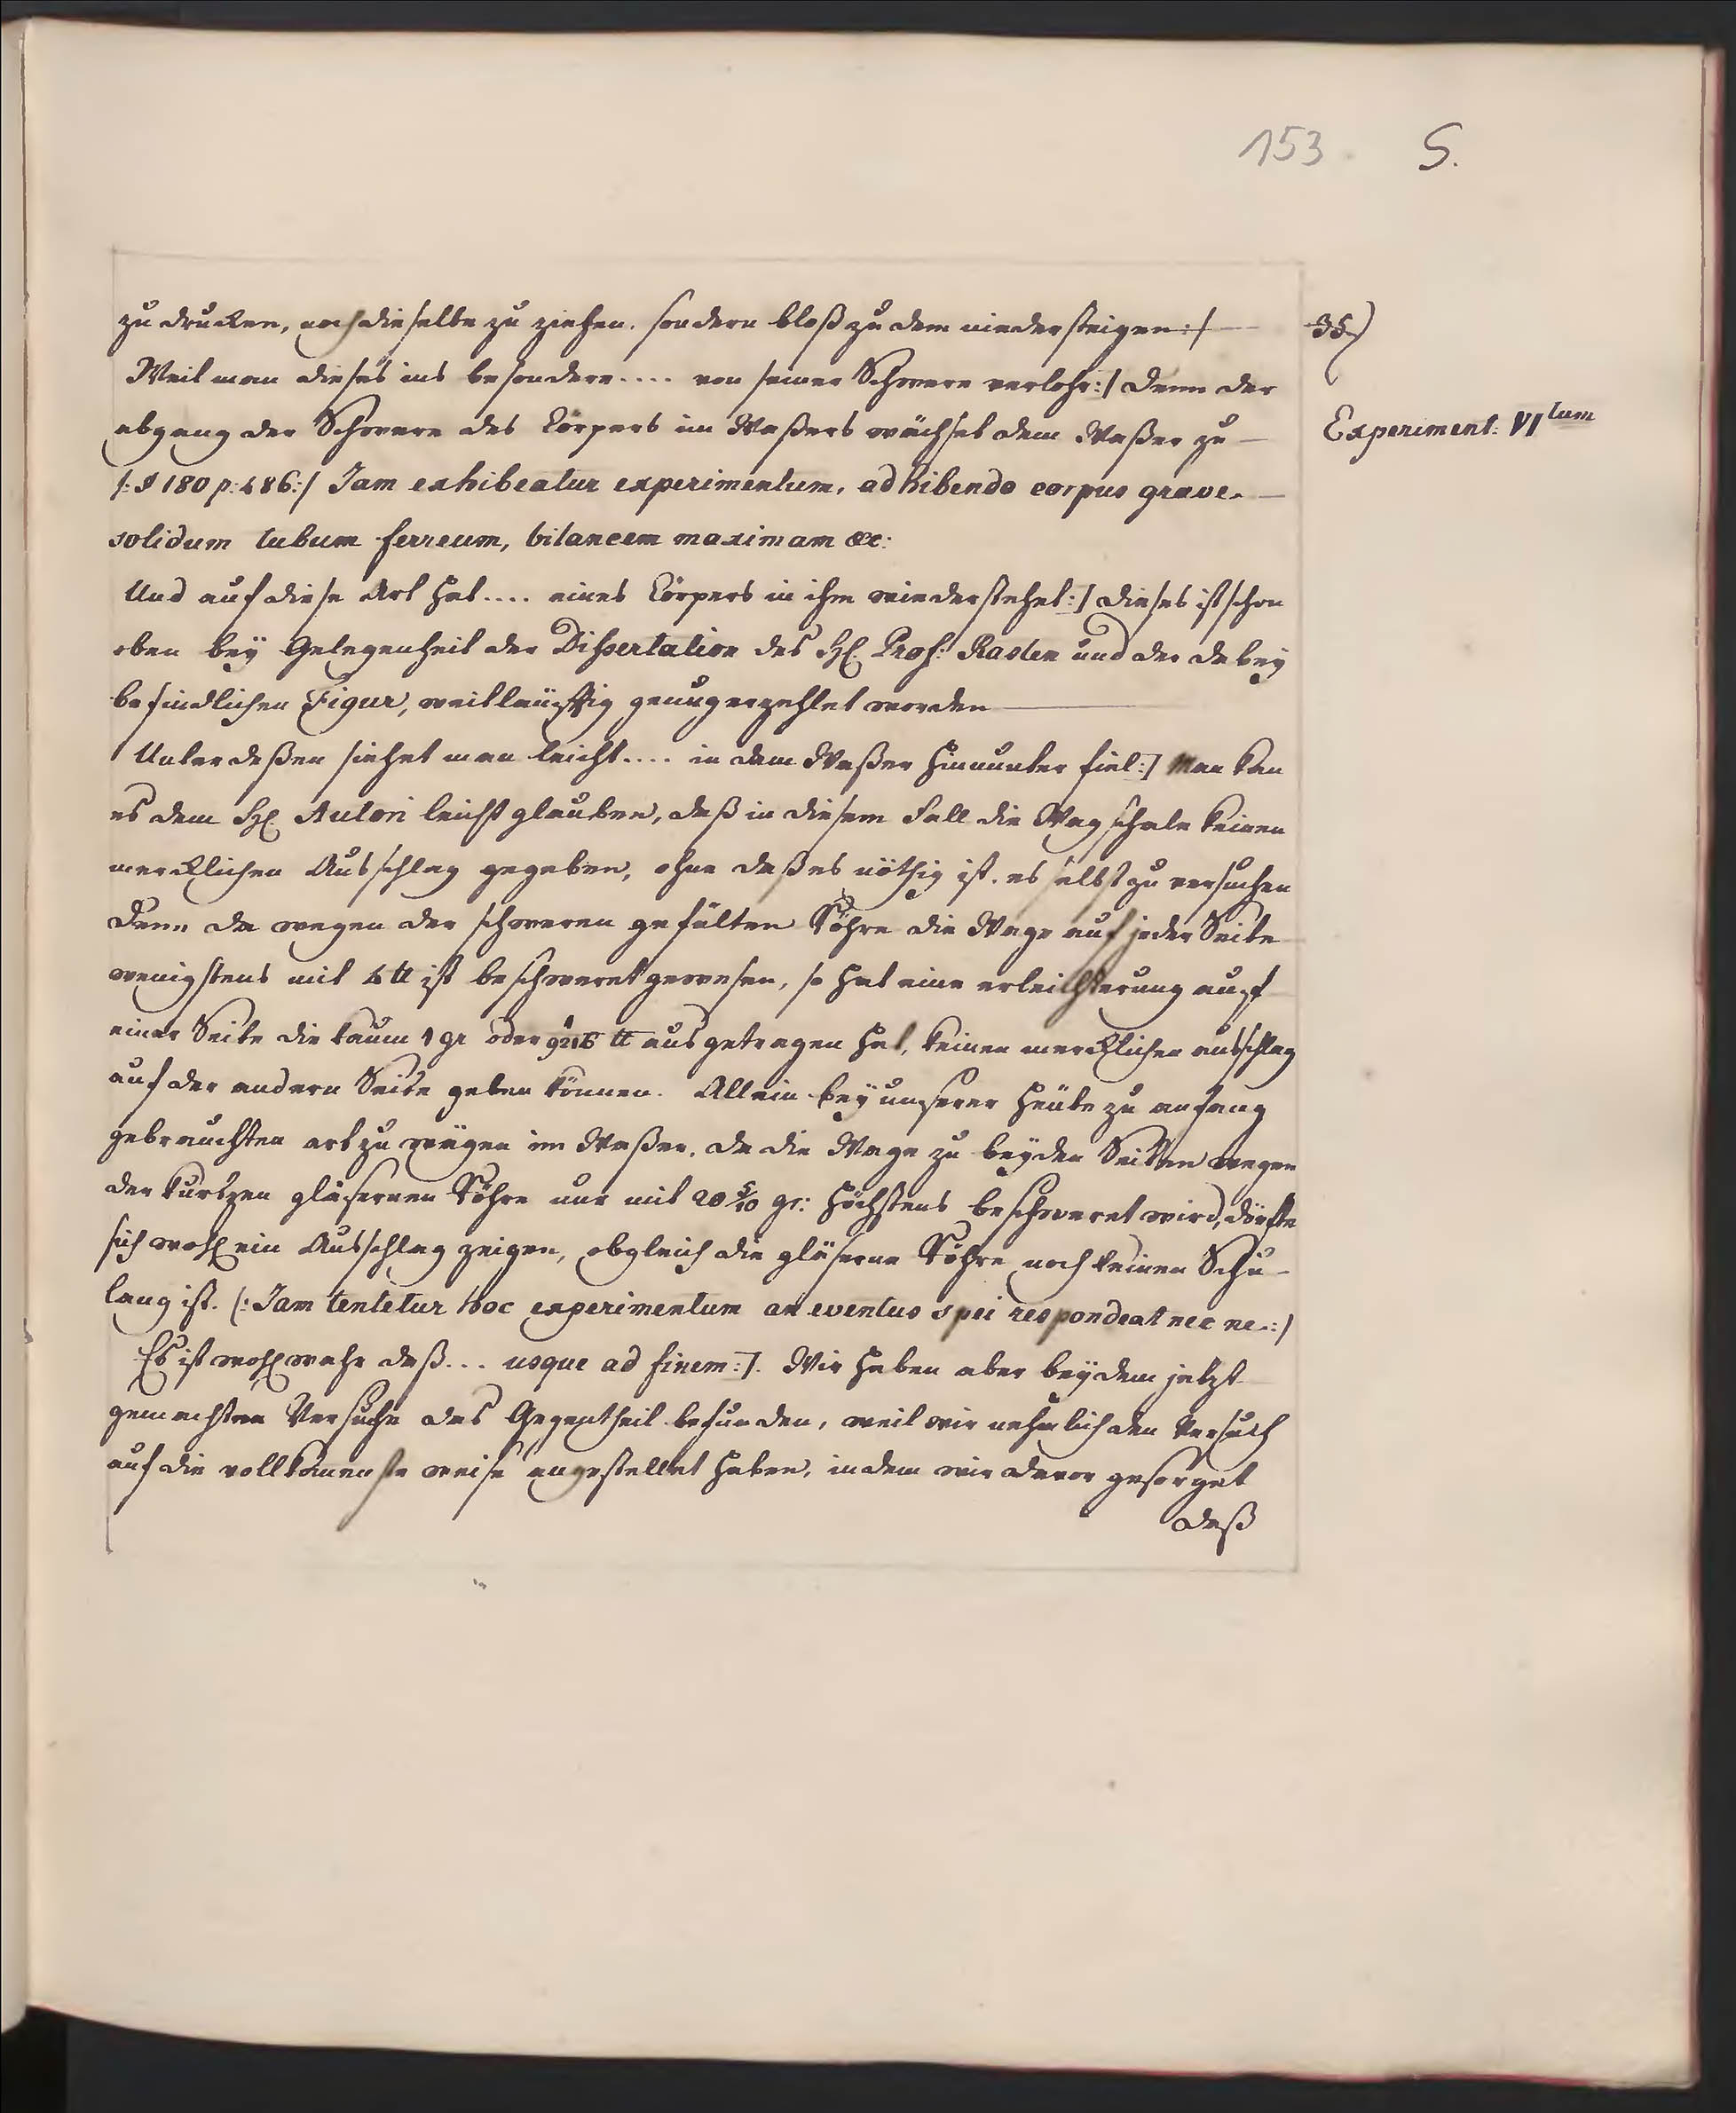 153 S.
zu drucken, noch dieselbe zu ziehen. sondern bloß zu dem niedersteigen:/ 35)
Weil man dieses ins besondere.... von seiner Schwere verlohr:/ Denn der
abgang der Schwere des Körpers im Waßers wächset dem Waßer zu Experiment: VItum
/: § 180 p: 486:/ Jam exhibeatur experimentum, adhibendo corpus grave
solidum tubum ferreum, bilancem maximam &c:
Und auf diese Art hat.... eines Körpers in ihm wiederstehet:] dieses ist schon
oben bey Gelegenheit der Dissertation des H. Prof: Rasten und der dabey
befindlichen Figur, weitläuftig genug erzehlet worden
Unterdeßen siehet man leicht.... in dem Waßer hinnunter fiel:] Man kan
es dem H. Autori leicht glauben, daß in diesem Fall die Wagschale keinen
mercklichen Ausschlag gegeben, ohne daß es nöthig ist. es selbst zu versuchen
Denn da wegen der schweren gefülten Röhre die Wage auf jeder Seite
wenigstens mit 4 ℔ ist beschweret gewesen, so hat eine erleichterung auf
einer Seite die kaum 1 gr oder 1/9216 ℔ ausgetragen hat, keinen mercklichen ausschlag
auf der andern Seite geben können. Allein bey unserer heute zu anfang
gebrauchten art zu wägen im Waßer, da die Wage zu beyden Seiten wegen
der kurtzen gläsernen Röhre nur mit 20 5/10 gr: höchstens beschweret wird, dörfte
sich wohl ein Ausschlag zeigen, obgleich die gläserne Röhre noch keinen Schu
lang ist. (: Jam tentetur hoc experimentum an eventus spei respondeat nec ne:)
Es ist wohl wahr daß... usque ad finem:]. Wir haben aber bey dem jetzt
gemachten Versuche das Gegentheil befunden, weil wir nehmlich den Versuch
auf die vollkommenste weise angestellet haben, indem wir davor gesorget
daß